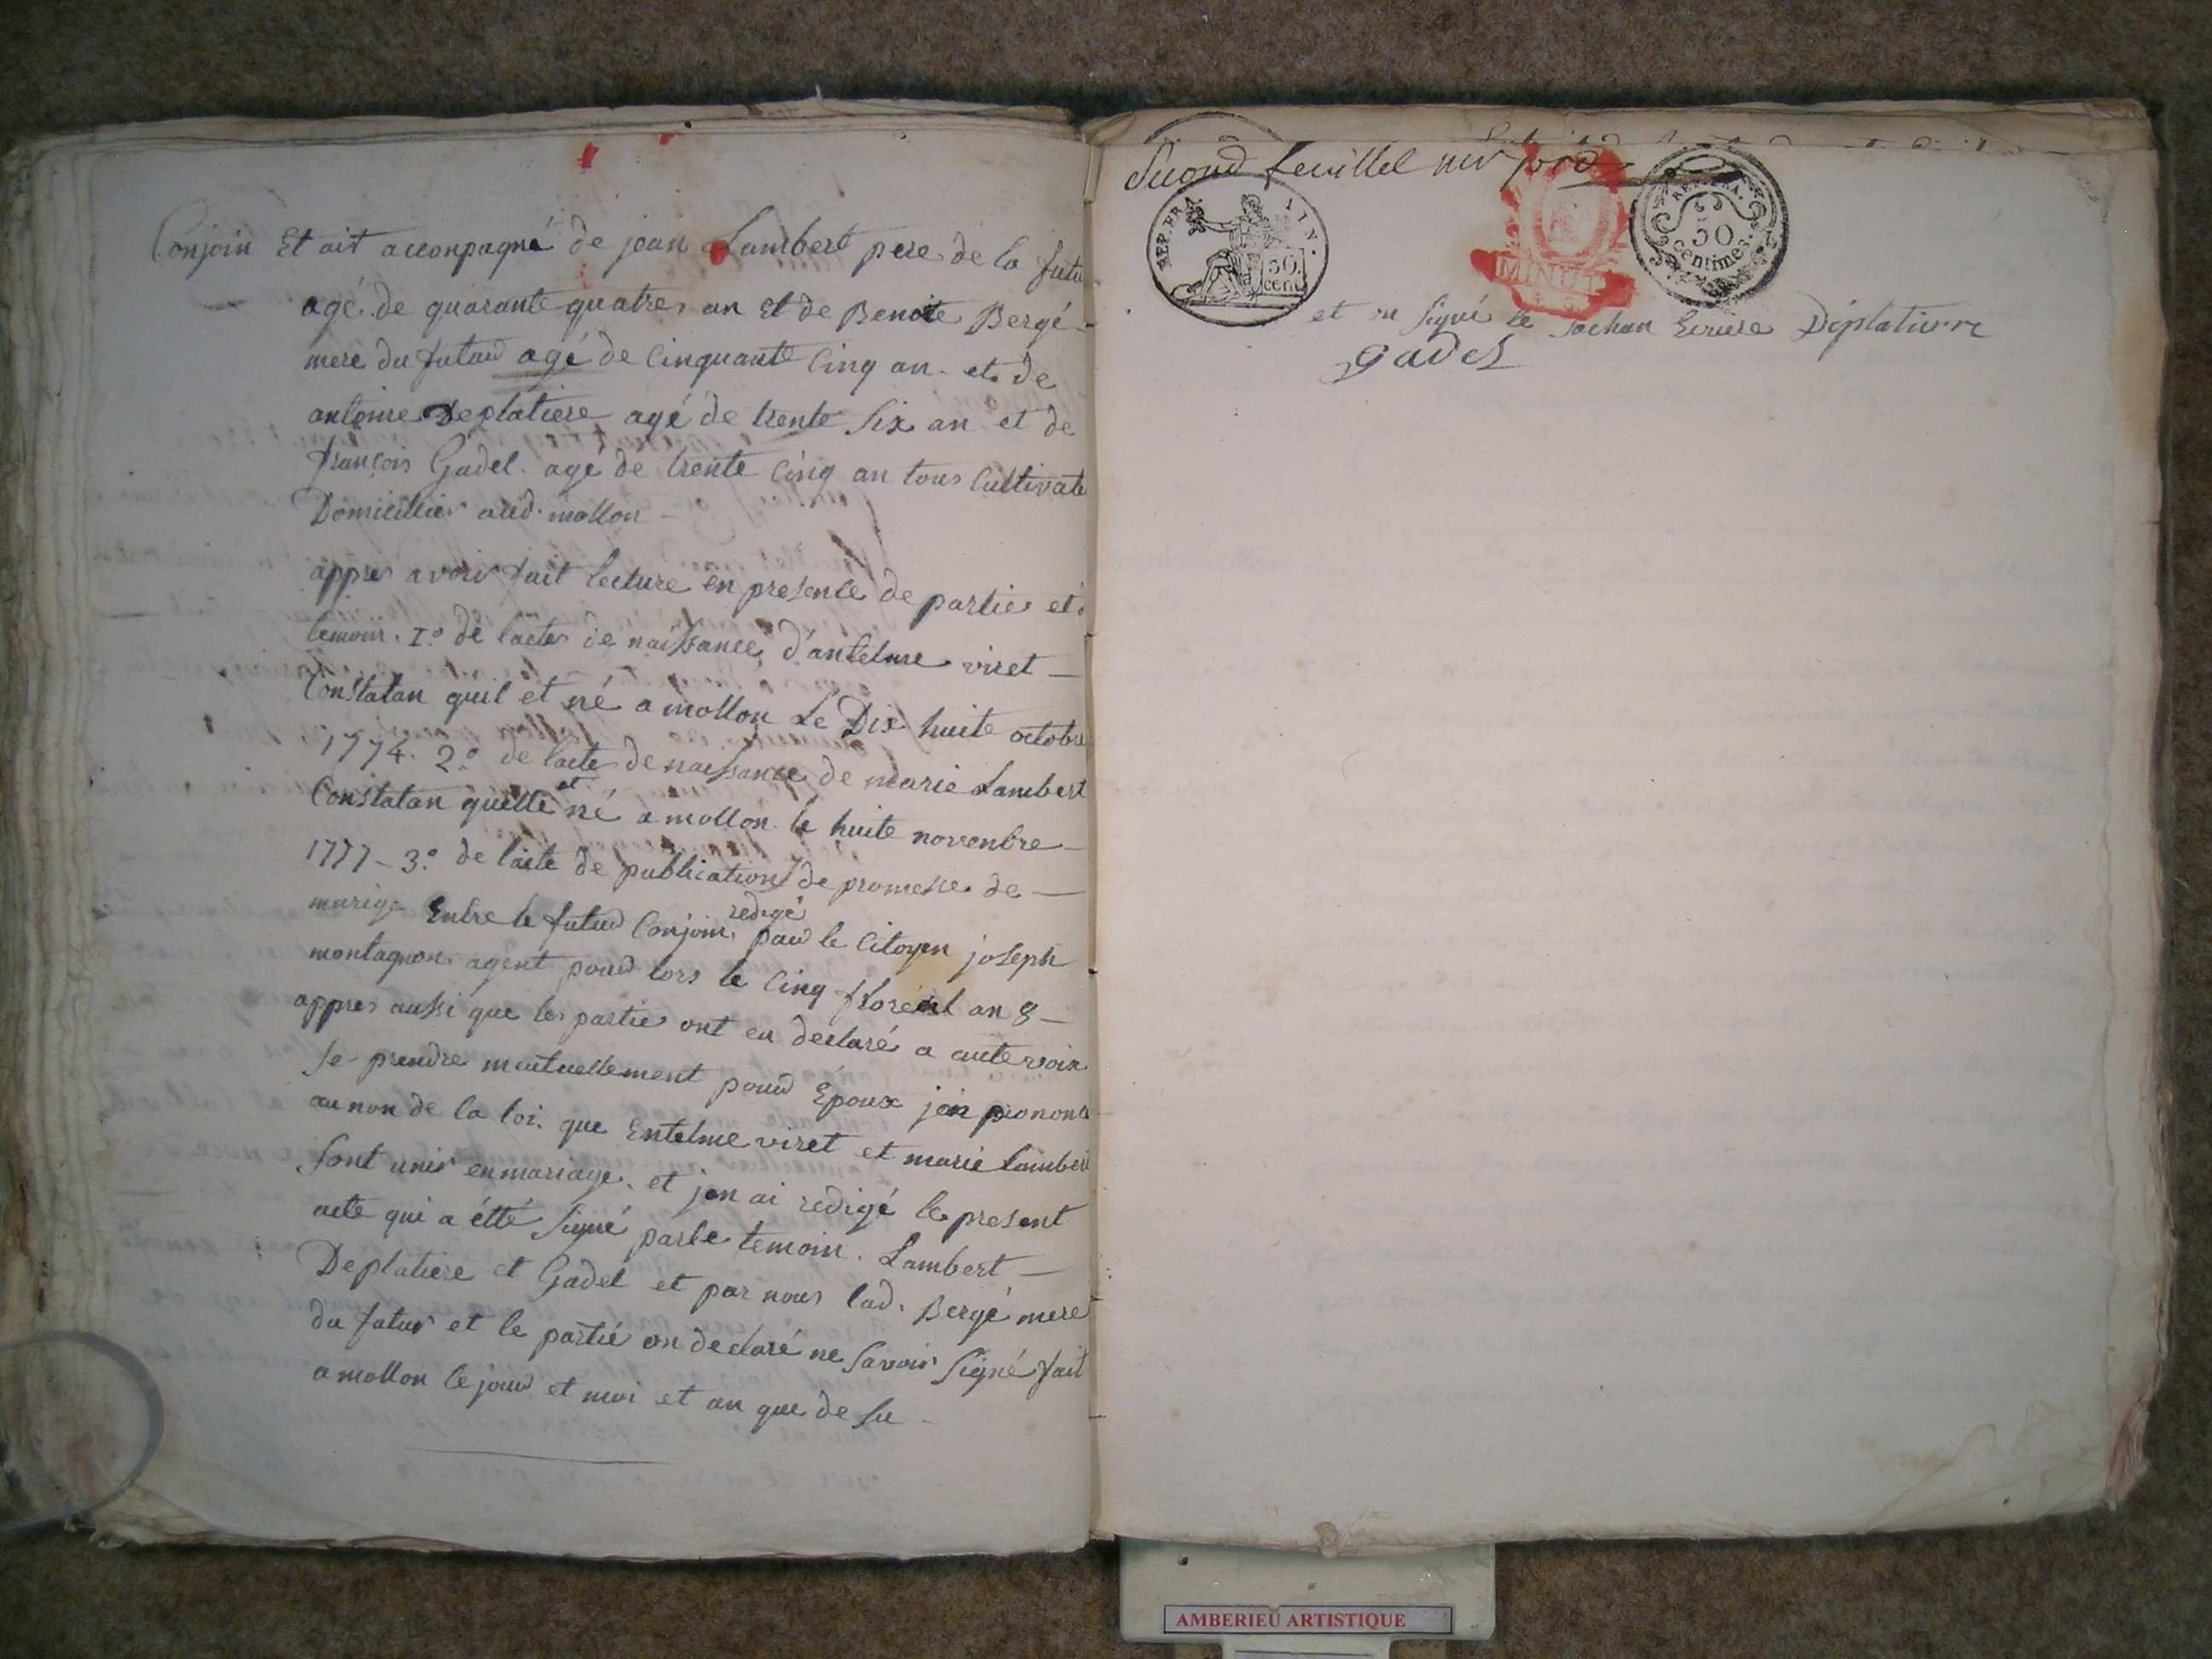 Conjoin Et ait acconpagné de jean Lambert pere de la futu
agé de quarante quatre an et de Benoite Bergé
mere du futur agé de Cinquante Cinq an et de
antoine Deplatiere agé de trente Six an et de
françois Gadel agé de trente Cinq an tous Cultivate
Domicillier aud. mollon
appres avoir fait lecture en presence de partie et d
temoin. I.° de lacte de naissance d'antelme viret
Constatan quil et né a mollon Le Dix huite octobre
1774. 2.° de lacte de naissance de marie Lambert
Constatan quelle et né a mollon le huite novenbre
1777 – 3.° de lacte de publication de promesse de
marige Entre le futur Conjoin redigé par le Citoyen joseph
montagnon agent pour lors le Cinq floréal an 8
appres aussi que les partie ont eu declaré a aute voix
Se prendre mutuellement pour Epoux jai prononcé
au non de la loi. que Entelme viret et marie Lambert
Sont unis en mariage. et jen ai redigé le present
acte qui a étté Signé par le temoin. Lambert
Deplatiere et Gadel et par nous lad. Bergé mere
du futur et le partié on declaré ne Savoir Signé fait
a mollon le jour et moi et an que de Su
Second feuillet
REP. FRA
50.
cent
MINUT
REP. FRA.
50
centimes.
et on Signé le Deplatierre
gadel
AMBERIEU ARTISTIQUE